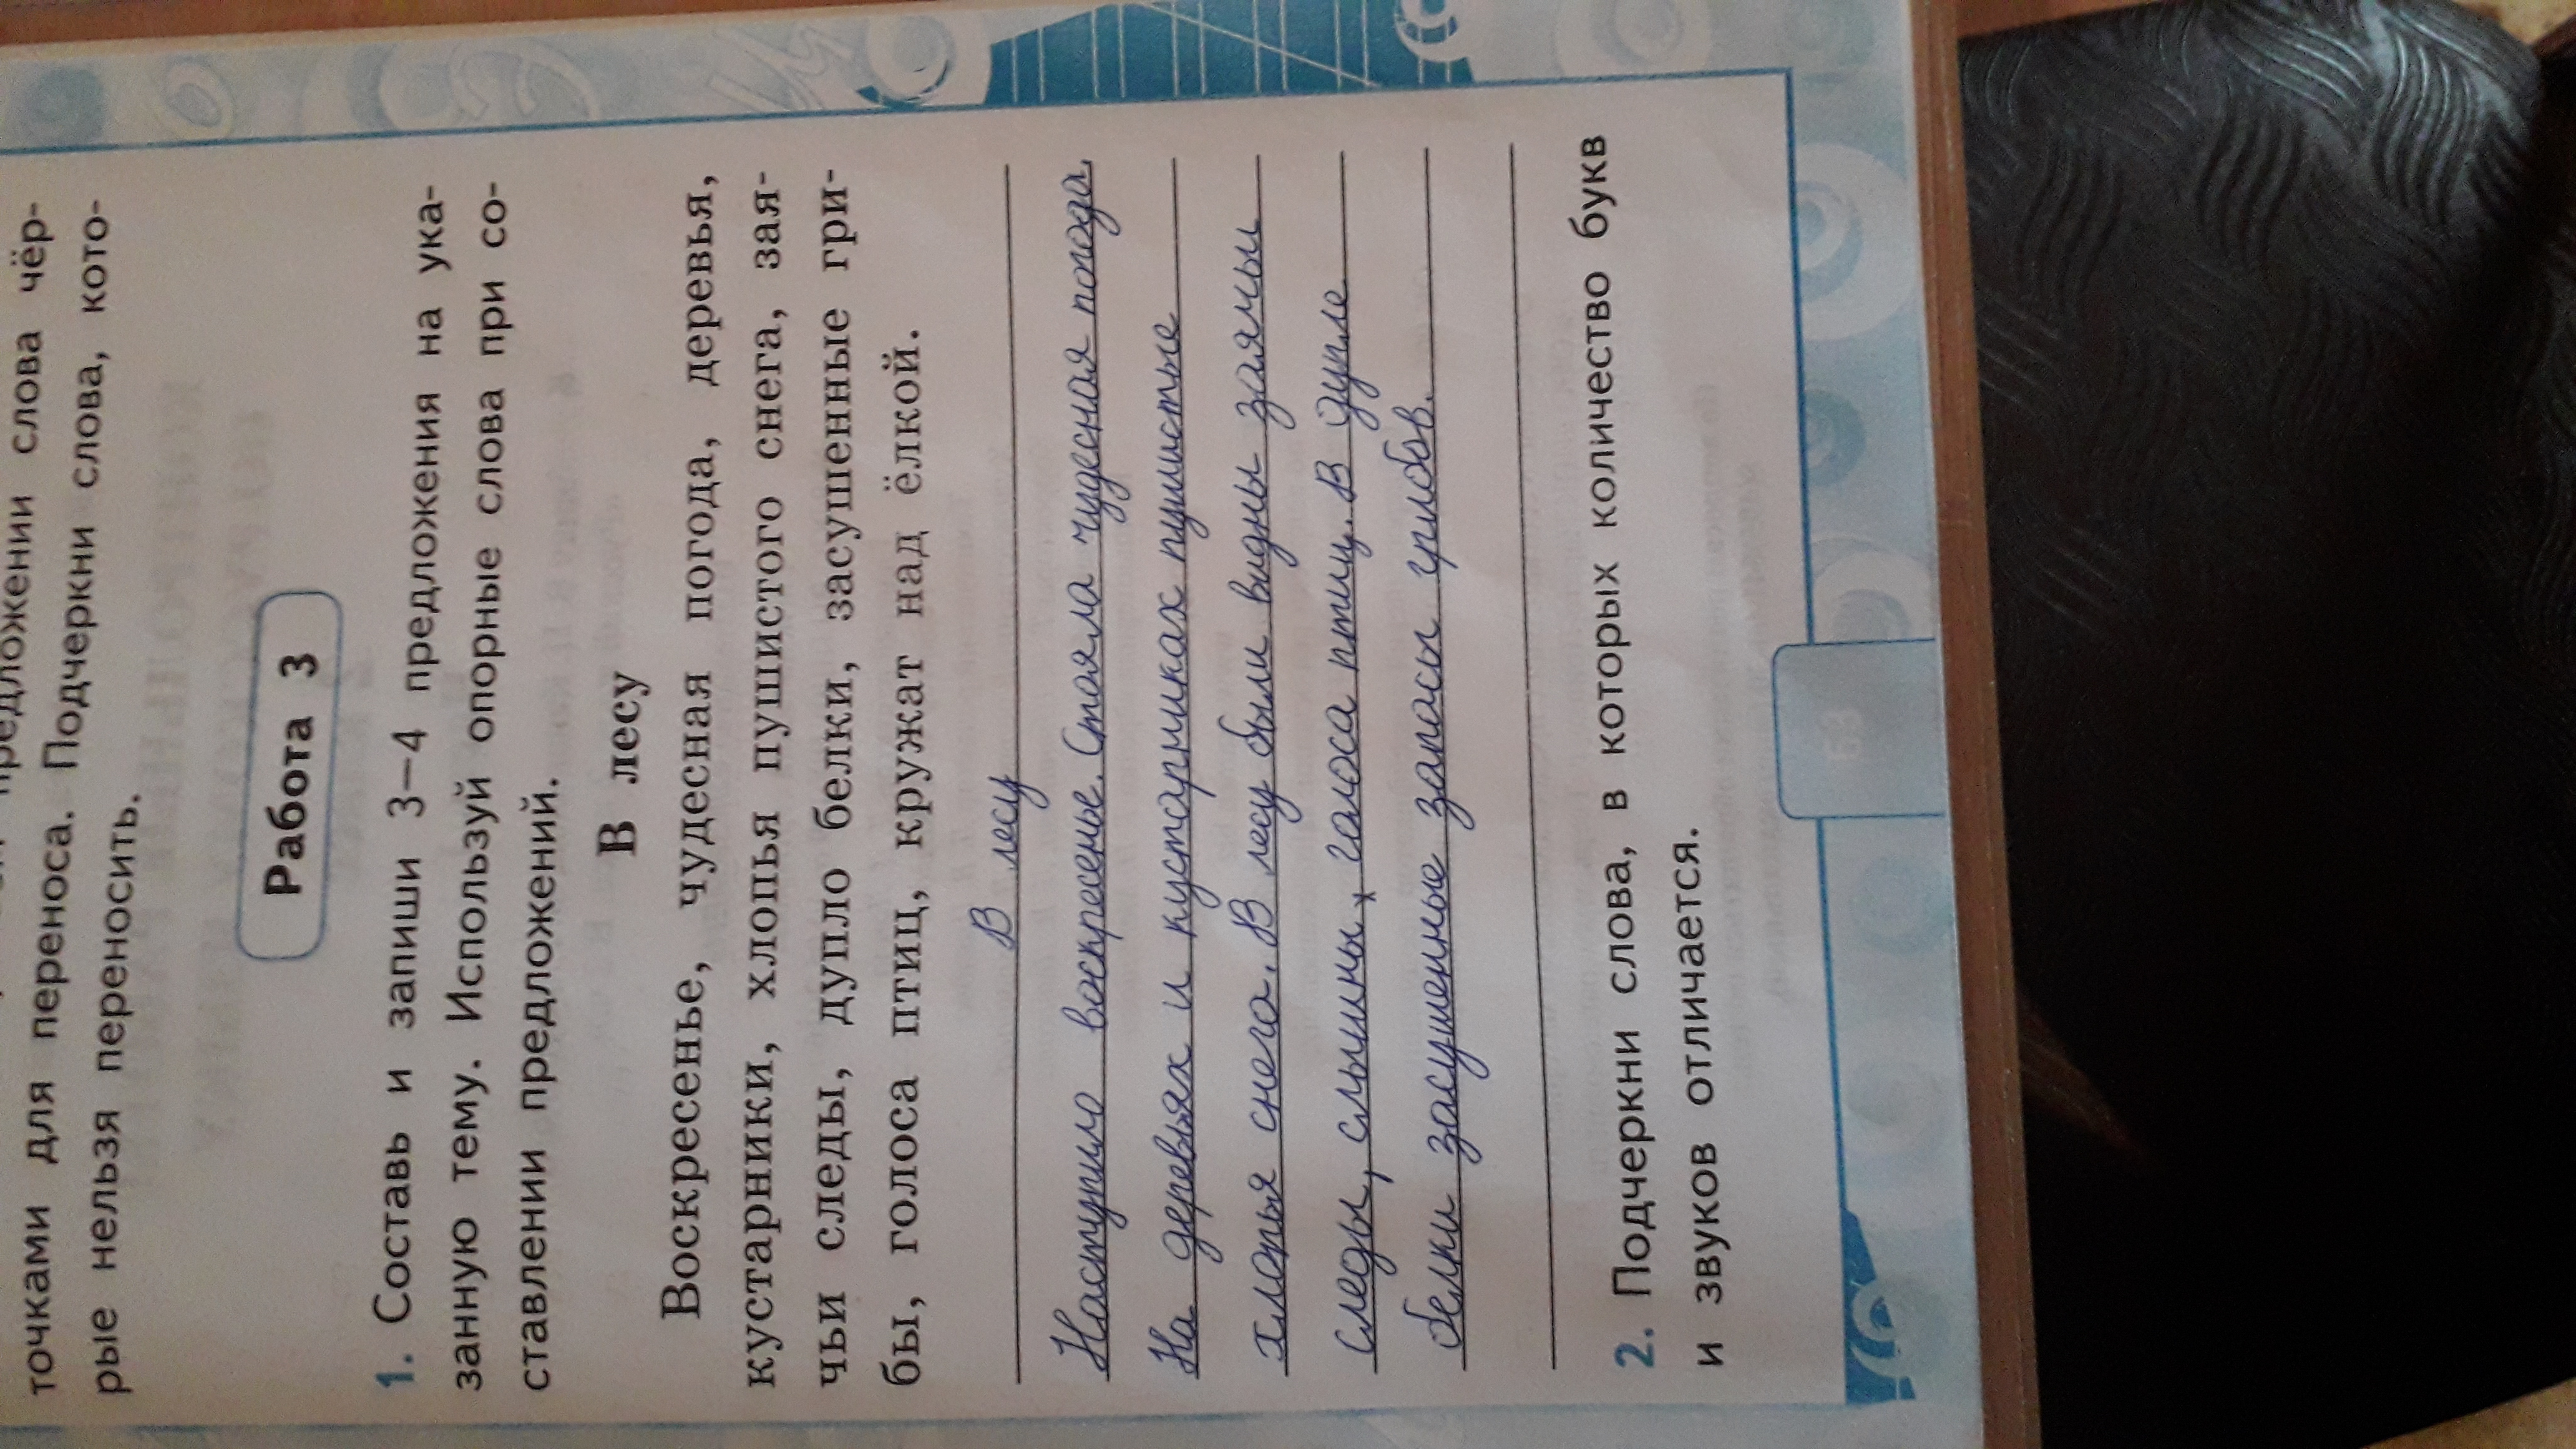 предложении слова чёр-
точками для переноса. Подчеркни слова, кото-
рые нельзя переносить.
Работа 3
1. Составь и запиши 3—4 предложения на ука-
занную тему. Используй опорные слова при со-
ставлении предложений.
В лесу
Воскресенье, чудесная погода, деревья,
кустарники, хлопья пушистого снега, зая-
чьи следы, дупло белки, засушенные гри-
бы, голоса птиц, кружат над ёлкой.
В лесу
Наступило воскресенье. Стояла чудесная погода
На деревьях и кустарниках пушистые
хлопья снега. В лесу были видны заячьи
следы, слышны голоса птиц. В дупле
белки засушенные запасы грибов.
2. Подчеркни слова, в которых количество букв
и звуков отличается.
63